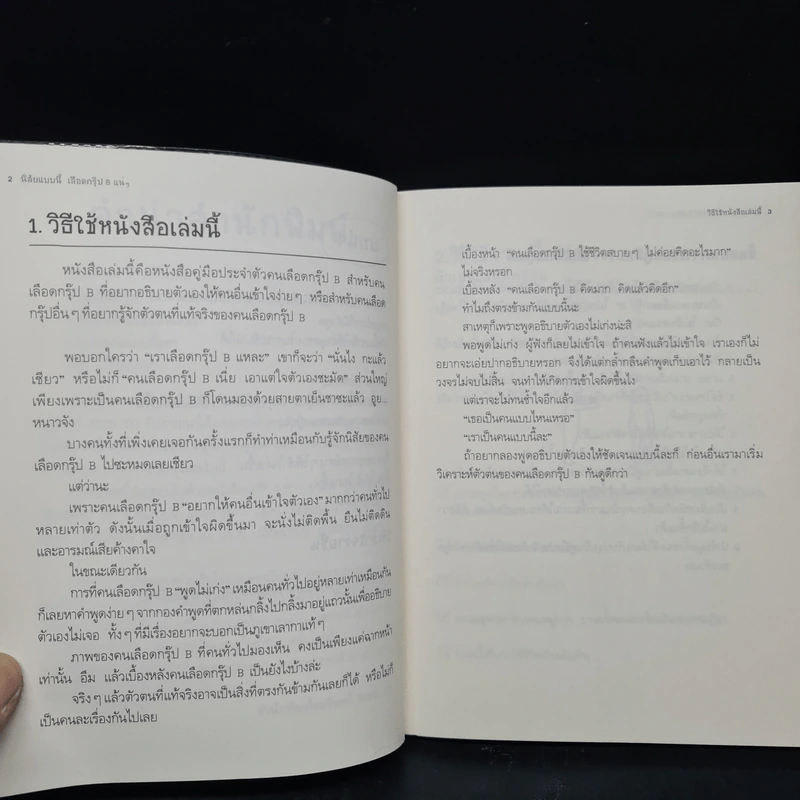 2 นิสัยแบบนี้ เลือดกรุ๊ป B แหงๆ
1. วิธีใช้หนังสือเล่มนี้
หนังสือเล่มนี้คือหนังสือคู่มือประจำตัวคนเลือดกรุ๊ป B สำหรับคน
เลือดกรุ๊ป B ที่อยากอธิบายตัวเองให้คนอื่นเข้าใจง่ายๆ หรือสำหรับคนเลือด
กรุ๊ปอื่นๆ ที่อยากรู้จักตัวตนที่แท้จริงของคนเลือดกรุ๊ป B
พอบอกใครว่า "เราเลือดกรุ๊ป B แหละ" เขาก็จะว่า "นั่นไง กะแล้ว
เชียว" หรือไม่ก็ "คนเลือดกรุ๊ป B เนี่ย เอาแต่ใจตัวเองชะมัด" ส่วนใหญ่
เพียงเพราะเป็นคนเลือดกรุ๊ป B ก็โดนมองด้วยสายตาเย็นชาซะแล้ว อูย...
หนาวจัง
บางคนทั้งที่เพิ่งเคยเจอกันครั้งแรกก็ทำท่าเหมือนกับรู้จักนิสัยของคน
เลือดกรุ๊ป B ไปซะหมดเลยเชียว
แต่ว่านะ
เพราะคนเลือดกรุ๊ป B "อยากให้คนอื่นเข้าใจตัวเอง" มากกว่าคนทั่วไป
หลายเท่าตัว ดังนั้นเมื่อถูกเข้าใจผิดขึ้นมา จะนั่งไม่ติดพื้น ยืนไม่ติดดิน
และอารมณ์เสียค้างคาใจ
ในขณะเดียวกัน
การที่คนเลือดกรุ๊ป B "พูดไม่เก่ง" เหมือนคนทั่วไปอยู่หลายเท่าเหมือนกัน
ก็เลยหาคำพูดง่ายๆ จากกองคำพูดที่ตกหล่นกลิ้งไปกลิ้งมาอยู่แถวนั้นเพื่ออธิบาย
ตัวเองไม่เจอ ทั้งๆ ที่มีเรื่องอยากจะบอกเป็นภูเขาเลากาแท้ๆ
ภาพของคนเลือดกรุ๊ป B ที่คนทั่วไปมองเห็น คงเป็นเพียงแค่ฉากหน้า
เท่านั้น อืม แล้วเบื้องหลังคนเลือดกรุ๊ป B เป็นยังไงบ้างล่ะ
จริงๆ แล้วตัวตนที่แท้จริงอาจเป็นสิ่งที่ตรงกันข้ามกันเลยก็ได้ หรือไม่ก็
เป็นคนละเรื่องกันไปเลย
วิธีใช้หนังสือเล่มนี้ 3
เบื้องหน้า "คนเลือดกรุ๊ป B ใช้ชีวิตสบายๆ ไม่ค่อยคิดอะไรมาก"
ไม่จริงหรอก
เบื้องหลัง "คนเลือดกรุ๊ป B คิดมาก คิดแล้วคิดอีก"
ทำไมถึงตรงข้ามกันแบบนี้นะ
สาเหตุก็เพราะพูดอธิบายตัวเองไม่เก่งน่ะสิ
พอพูดไม่เก่ง ผู้ฟังก็เลยไม่เข้าใจ ถ้าคนฟังแล้วไม่เข้าใจ เราเองก็ไม่
อยากจะเอ่ยปากอธิบายหรอก จึงได้แต่กล้ำกลืนคำพูดเก็บเอาไว้ กลายเป็น
วงจรไม่จบไม่สิ้น จนทำให้เกิดการเข้าใจผิดขึ้นไง
แต่เราจะไม่ทนช้ำใจอีกแล้ว
"เธอเป็นคนแบบไหนเหรอ"
"เราเป็นคนแบบนี้ละ"
ถ้าอยากลองพูดอธิบายตัวเองให้ชัดเจนแบบนี้ละก็ ก่อนอื่นเรามาเริ่ม
วิเคราะห์ตัวตนของคนเลือดกรุ๊ป B กันดูดีกว่า